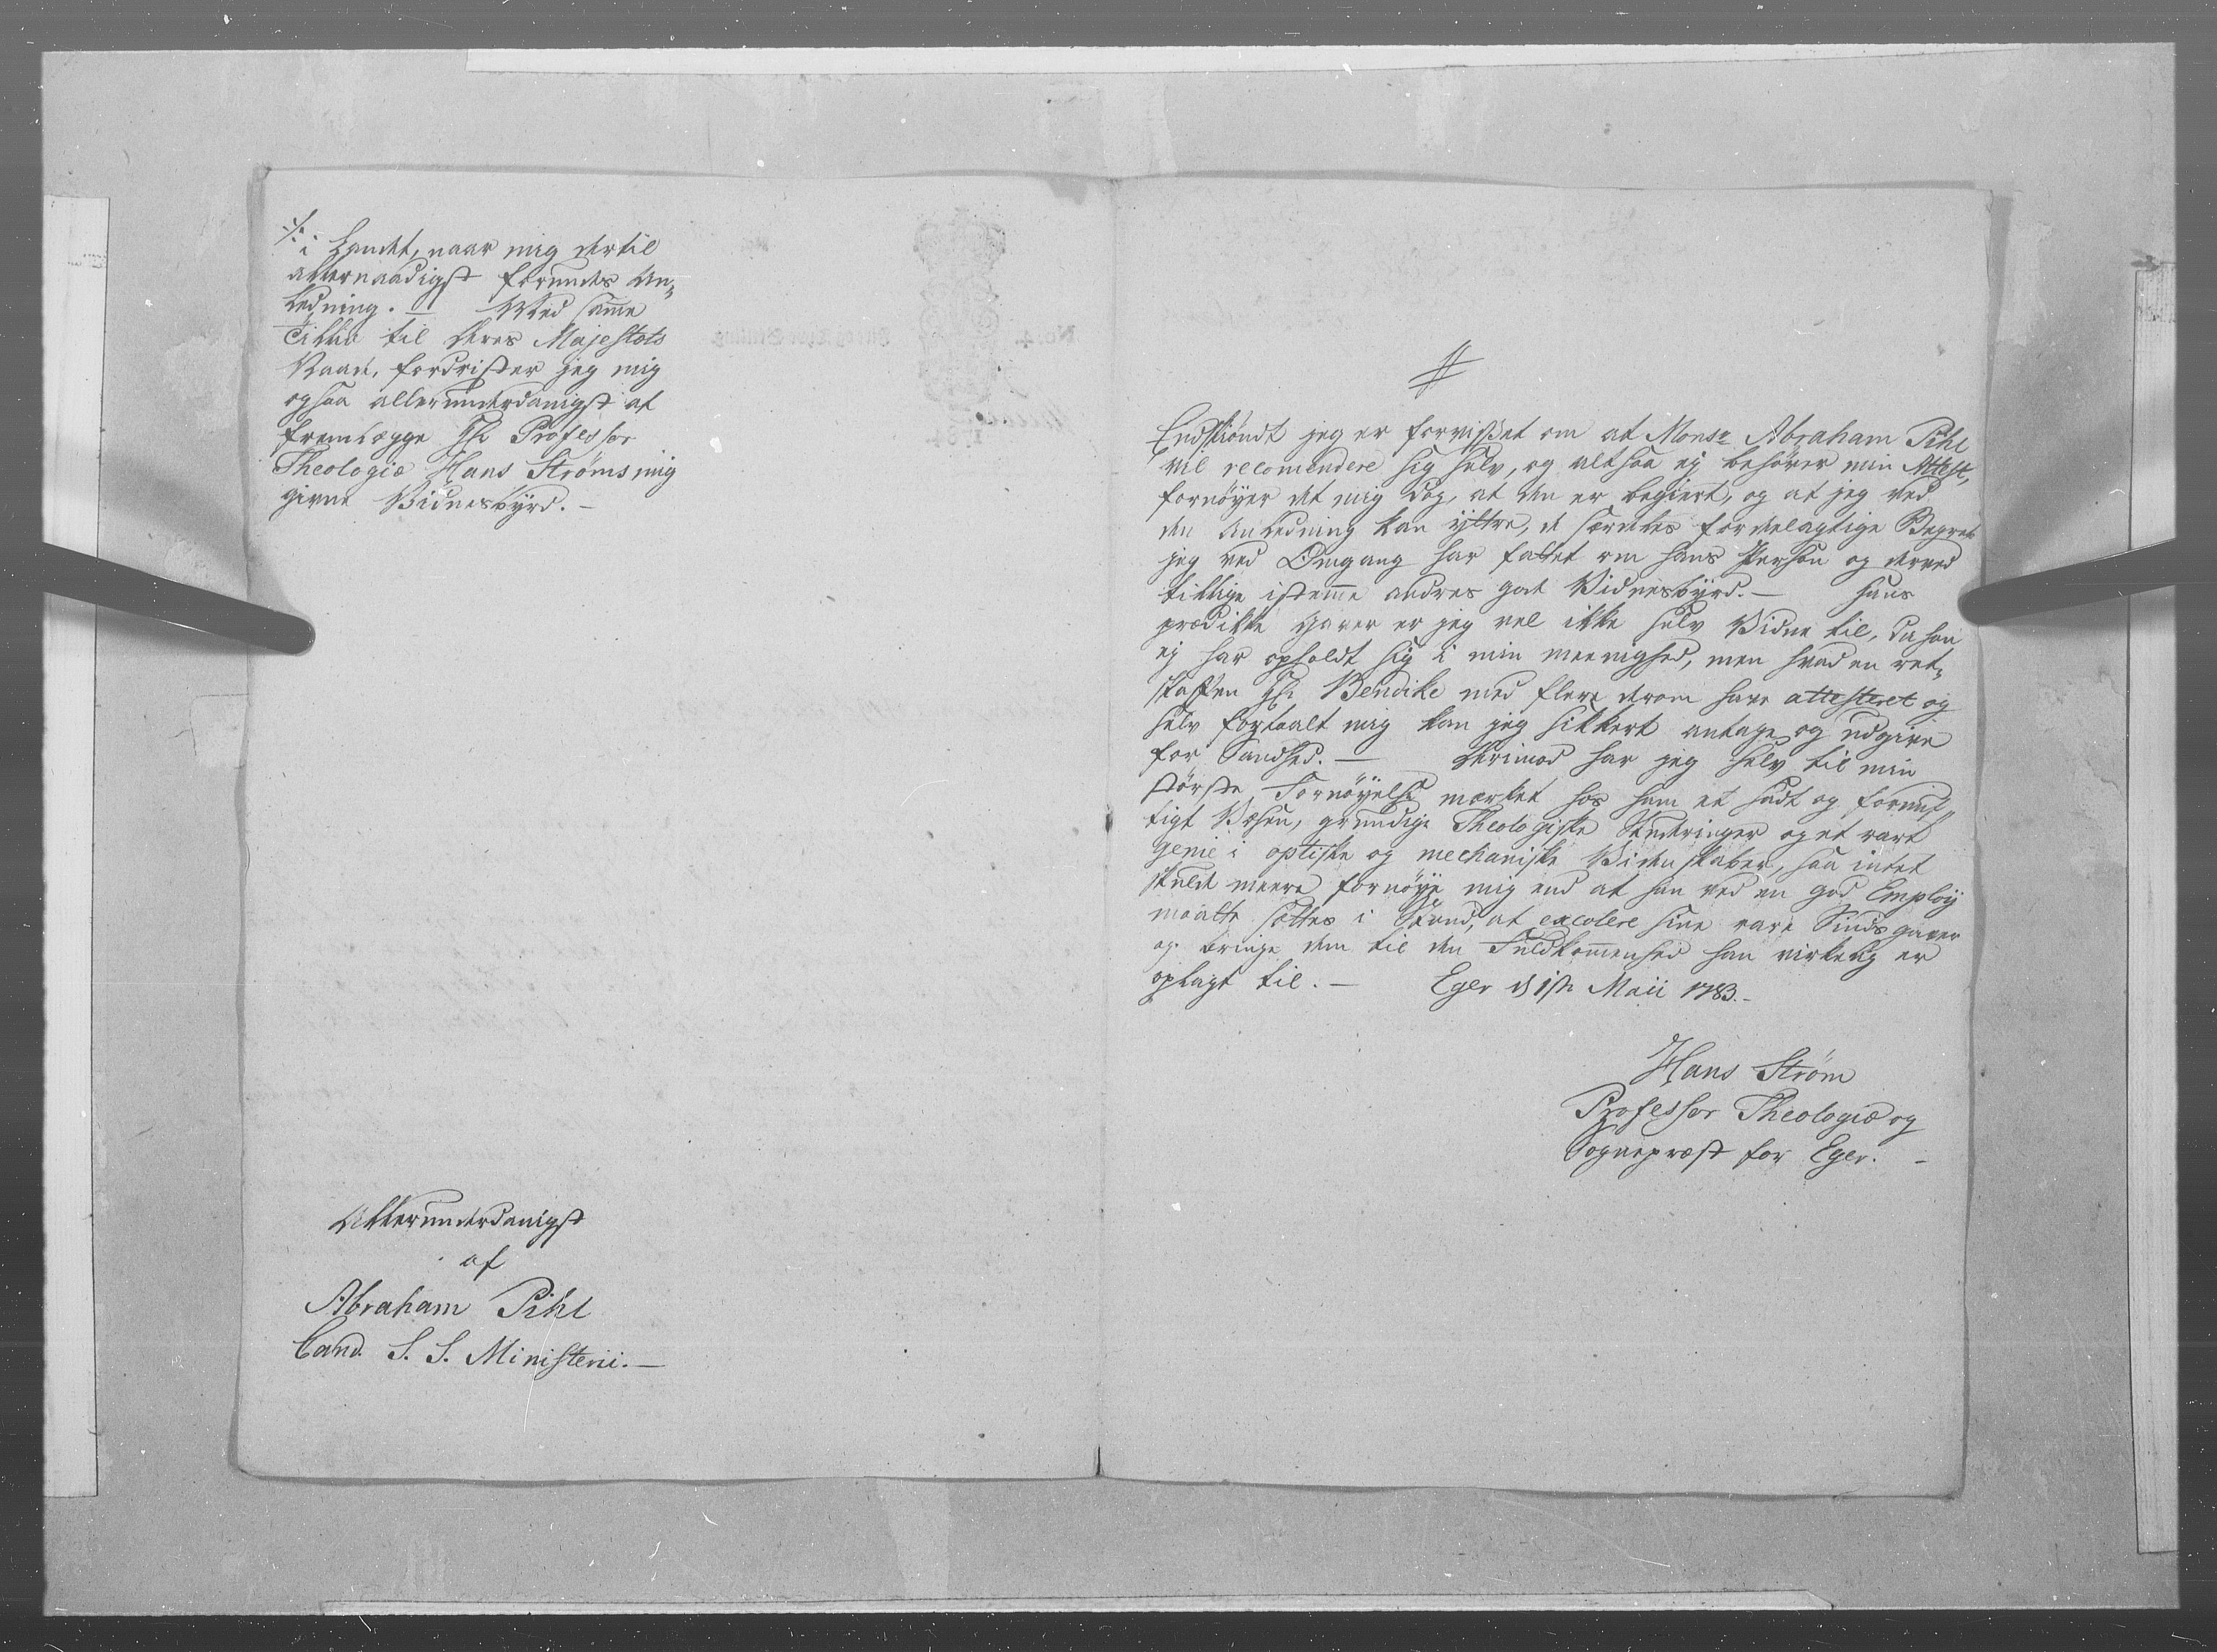 ·/· i Landet, naar mig dertil
allernaadigst forundes An„
ledning. — Med samme
Tillid til Deres Majestæts
Naade, fordrister jeg mig
ogsaa allerunderdanigst at
fremlægge Hr Professor
Theologiæ Hans Strøms mig
givne Vidnesbyrd. –
Allerunderdanigst
af
Abraham Pihl
Cand. S. S. Ministerii. —
Endskiöndt jeg er forvisset om at Monsr Abraham Pihl
vil recomendere sig selv, og altsaa ej behöver min Attest,
fornöyer det mig dog, at den er begiert, og at jeg ved
den Anledning kan yttre, de særdeles fordelagtige Begreb
jeg ved Omgang har fattet om hans Person og derved
tillige istemme andres gode Vidnesbyrd. — Hans
prædikke Gaver er jeg vel ikke selv Vidne til, da han
ej har opholdt sig i min Meenighed, men hvad en ret„
skaffen Hr Bendike med flere derom have attesteret og
selv fortaalt mig kan jeg sikkert antage og udgive
for Sandhed. — Derimod har jeg selv til min
störste Fornöyelse mærket hos ham et sædt og fornuf„
tigt Væsen, grundige Theologiske Studeringer og et rart
Genie i optiske og mechaniske Videnskaber, saa intet
skulde meere fornöye mig end at han ved en god Employ
maatte sættes i Stand, at excolere sine rare Sinds Gaver
og bringe dem til den Fuldkommenhed han virkelig er
oplagt til. — Eger d 1ste Maii 1783. –
Hans Strøm
Professor Theologiæ og
Sognepræst for Eger. –